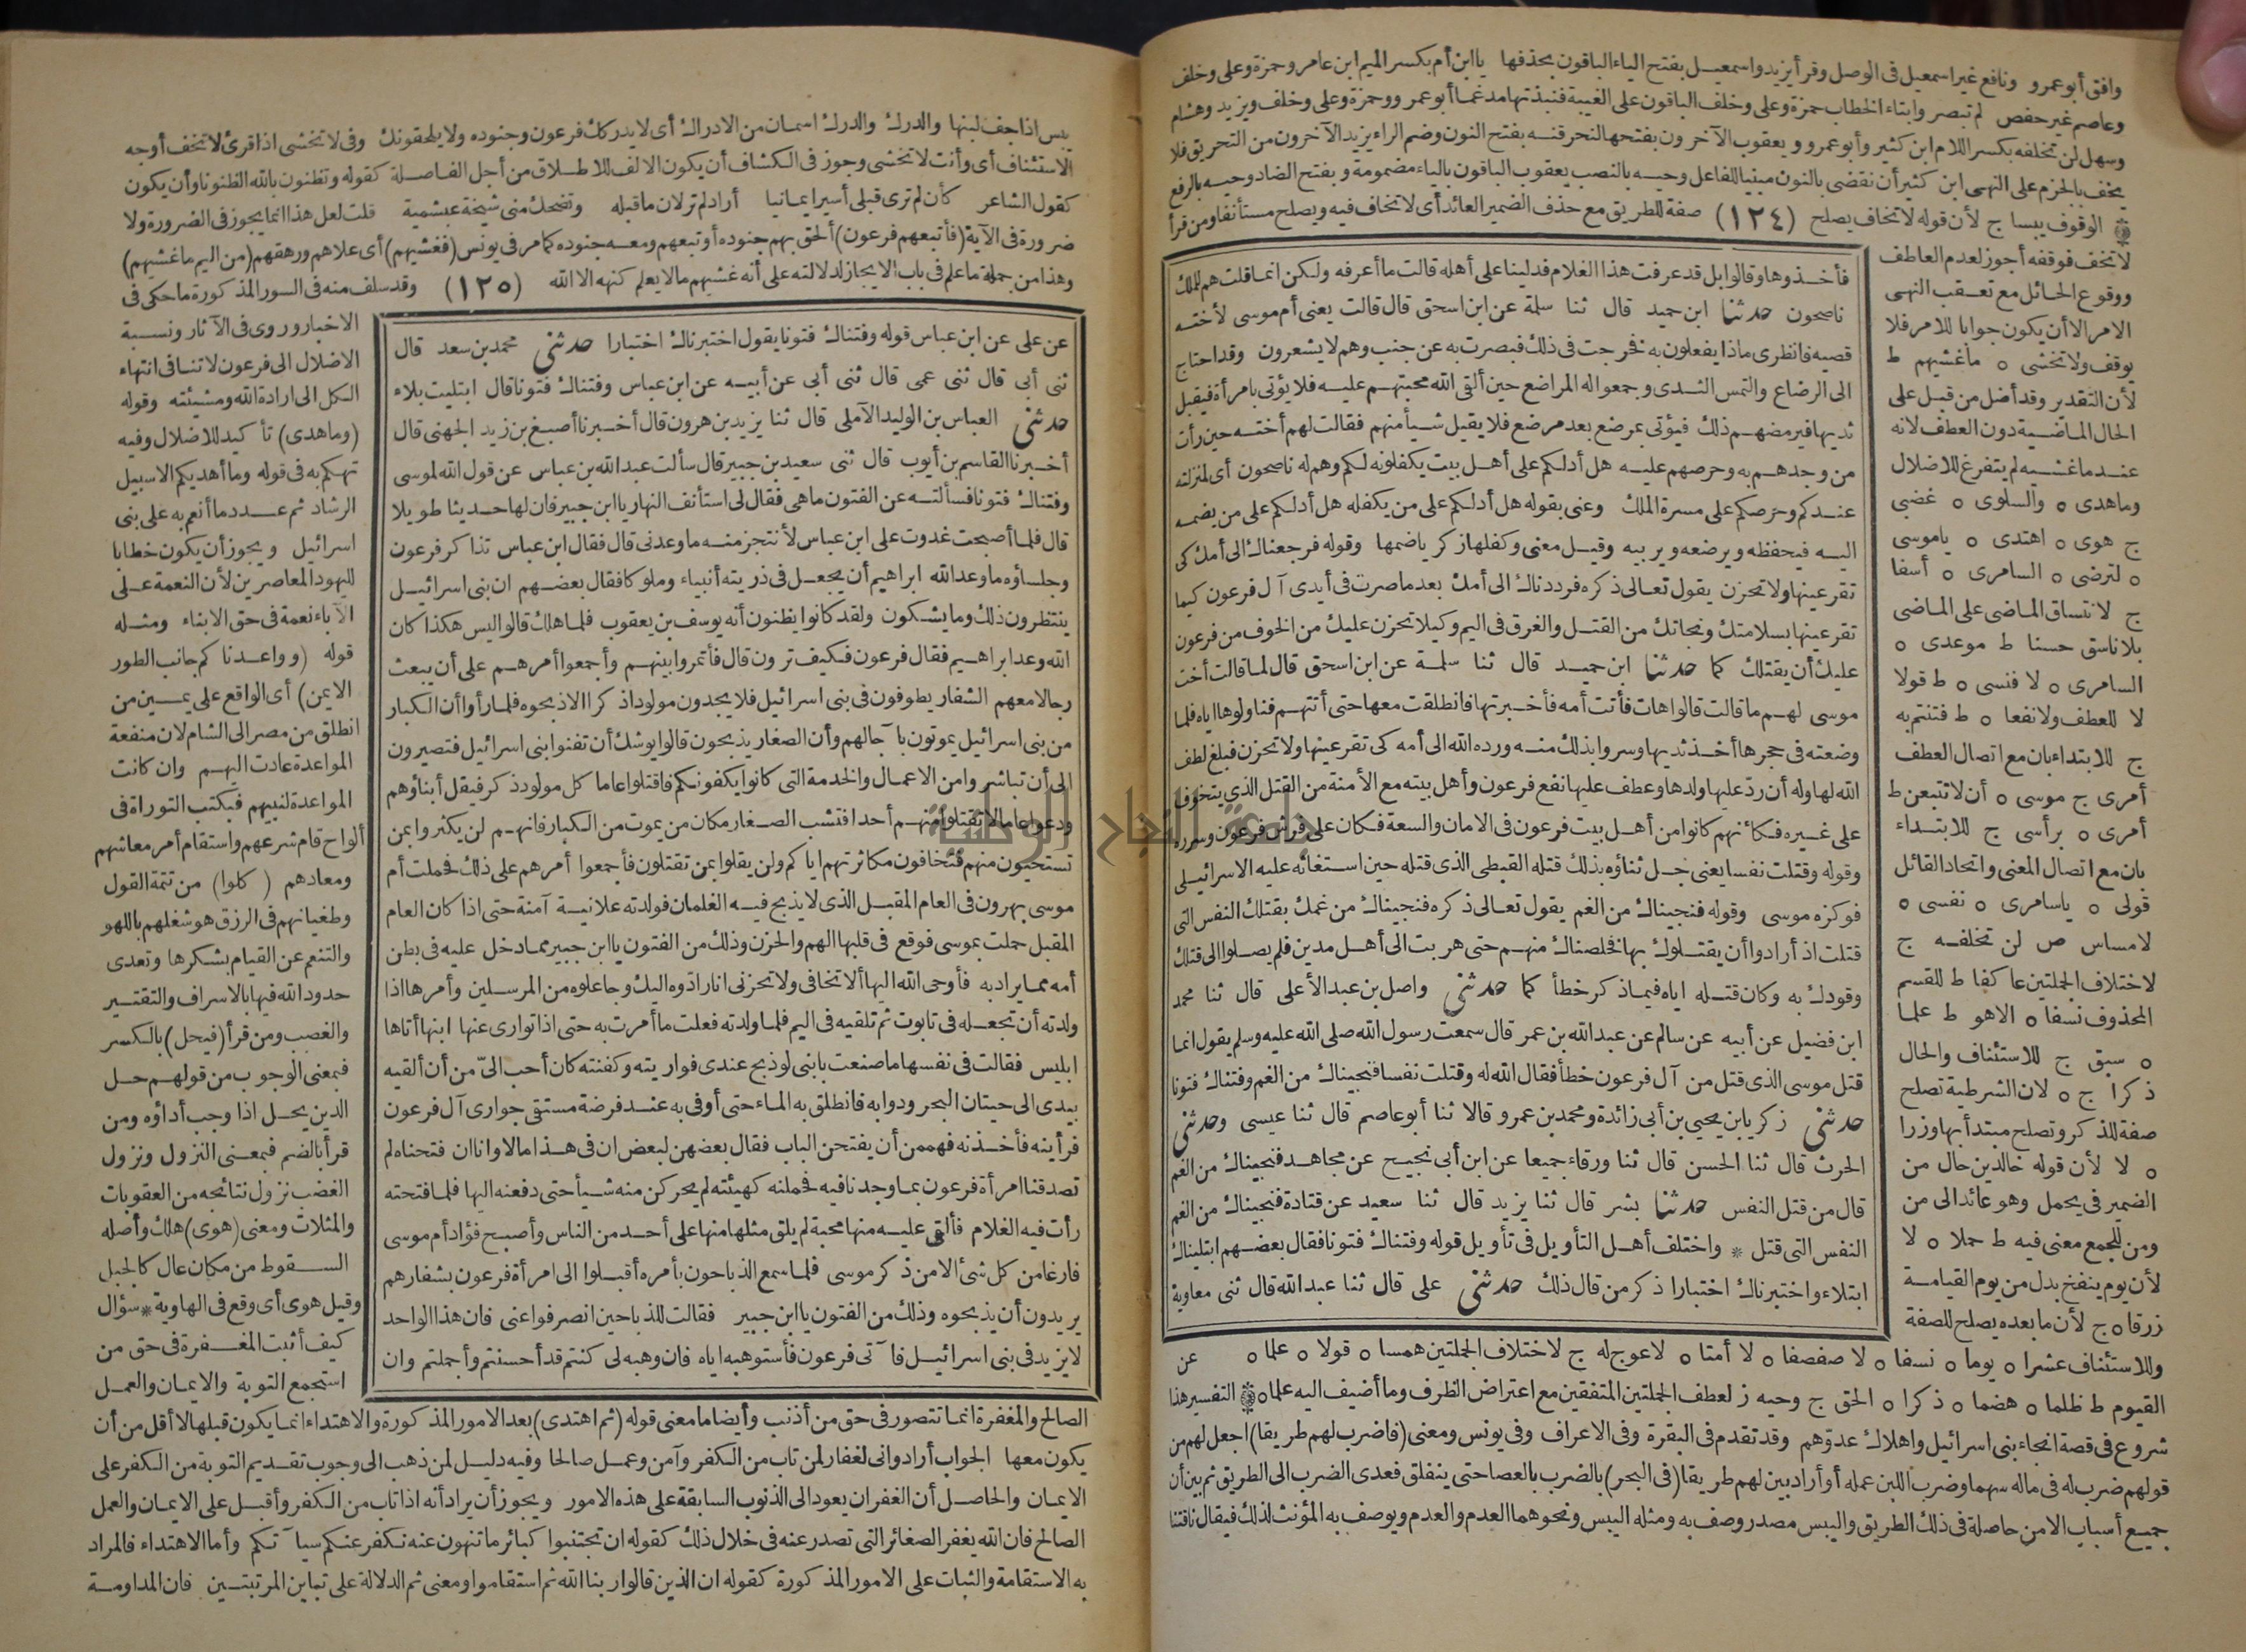 وافق أبو عمرو ونافع غير اسمعيل فى الوصل وقرأ يزيد واسمعيل بفتح الياء الباقون بحذفها يا ابن أم بكسر الميم ابن عامر وحمزة وعلى وخلف
وعاصم غير حفص لم تبصروا بتاء الخطاب حمزة وعلى وخلف الباقون على الغيبة فنبذتها مدغما أبو عمرو وحمزة وعلى وخلف ويزيد وهشام
وسهل لن تخلفه بكسر اللام ابن كثير وأبو عمرو ويعقوب الآخرون بفتحها لنحرقنه بفتح النون وضم الراء يزيد الآخرون من التحريق فلا
يخف بالجزم على النهى ابن كثير أن نقضى بالنون مبنيا للفاعل وحيه بالنصب يعقوب الباقون بالياء مضمومة وبفتح الضاد وحيه بالرفع
الوقوف يبسا ج لأن قوله لا تخاف يصلح (١٢٤) صفة للطريق مع حذف الضمير العائد أى لا تخاف فيه ويصلح مستأنفا ومن قرأ
لا تخف فوقفه أجوز لعدم العاطف
ووقوع الحائل مع تعقب النهى
الامر الا أن يكون جوابا للامر فلا
يوقف ولا تخشى ه ما غشيهم ط
لأن التقدير وقد أضل من قبل على
الحال الماضية دون العطف لانه
عند ما غشيه لم يتفرغ للاضلال
وما هدى ه والسلوى ه غضبى
ج هوى ه اهتدى ه ياموسى
ه لترضى ه السامرى ه أسفا
ج لا تتساق الماضى على الماضى
بلا ناسق حسنا ط موعدى ه
السامرى ه لا فنسى ه ط قولا
لا للعطف ولا نفعا ه ط فتنتم به
ج للابتداء بان مع اتصال العطف
أمرى ج موسى ه أن لا تتبعن ط
أمرى ه برأسى ج للابتداء
بان مع اتصال المعنى واتحاد القائل
قولى ه ياسامرى ه نفسى ه
لا مساس ص لن تخلفه ج
لاختلاف الجملتين عاكفا ط للقسم
المحذوف نسفا ه الا هو ط علما
ه سبق ج للاستئناف والحال
ذكرا ج ه لان الشرطية تصلح
صفة للذكر وتصلح مبتدأ بها وزرا
ه لا لأن قوله خالدين حال من
الضمير فى يحمل وهو عائد الى من
ومن للجمع معنى فيه ط حملا ه لا
لأن يوم ينفخ بدل من يوم القيامة
زرقا ه ج لأن ما بعده يصلح للصفة
فأخذوها وقالوا بل قد عرفت هذا الغلام فدلينا على أهله قالت ما أعرفه ولكن انما قلت هم للملك
ناصحون حدثنا ابن حميد قال ثنا سلمة عن ابن اسحق قال قالت يعنى أم موسى لأخته
قصيه فانظرى ماذا يفعلون به فخرجت فى ذلك فبصرت به عن جنب وهم لا يشعرون وقد احتاج
الى الرضاع والتمس الثدى وجمعوا له المراضع حين ألقى الله محبتهم عليه فلا يؤتى بامرأة فيقبل
ثديها فيرمضهم ذلك فيؤتى بمرضع بعد مرضع فلا يقبل شيأ منهم فقالت لهم أخته حين رأت
من وجدهم به وحرصهم عليه هل أدلكم على أهل بيت يكفلونه لكم وهم له ناصحون أى لمنزلته
عندكم وحرصكم على مسرة الملك وعنى بقوله هل أدلكم على من يكفله هل أدلكم على من يضمه
اليه فيحفظه ويرضعه ويربيه وقيل معنى وكفلها زكريا ضمها وقوله فرجعناك الى أمك كى
تقر عينها ولا تحزن يقول تعالى ذكره فرددناك الى أمك بعد ما صرت فى أيدى آل فرعون كيما
تقر عينها بسلامتك ونجاتك من القتل والغرق فى اليم وكيلا تحزن عليك من الخوف من فرعون
عليك أن يقتلك كما حدثنا ابن حميد قال ثنا سلمة عن ابن اسحق قال لما قالت أخت
موسى لهم ما قالت قالوا هات فأتت أمه فأخبرتها فانطلقت معها حتى أتتهم فناولوها اياه فلما
وضعته فى حجرها أخذ ثديها وسروا بذلك منه ورده الله الى أمه كى تقر عينها ولا تحزن فبلغ لطف
الله لها وله أن ردّ عليها ولدها وعطف عليها نفع فرعون وأهل بيته مع الأمنة من القتل الذى يتخوف
على غيره فكأنهم كانوا من أهل بيت فرعون فى الامان والسعة فكان على فرش فرعون وسرره
وقوله وقتلت نفسا يعنى جل ثناؤه بذلك قتله القبطى الذى قتله حين استغاثه عليه الاسرائيلى
فوكزه موسى وقوله فنجيناك من الغم يقول تعالى ذكره فنجيناك من غمك بقتلك النفس التى
قتلت اذ أرادوا أن يقتلوك بها فخلصناك منهم حتى هربت الى أهل مدين فلم يصلوا الى قتلك
وقودك به وكان قتله اياه فيما ذكر خطأ كما حدثنى واصل بن عبد الأعلى قال ثنا محمد
ابن فضيل عن أبيه عن سالم عن عبد الله بن عمر قال سمعت رسول الله صلى الله عليه وسلم يقول انما
قتل موسى الذى قتل من آل فرعون خطأ فقال الله له وقتلت نفسا فنجيناك من الغم وفتناك فتونا
حدثنى زكريا بن يحيى بن أبى زائدة ومحمد بن عمرو قالا ثنا أبو عاصم قال ثنا عيسى وحدثنى
الحرث قال ثنا الحسن قال ثنا ورقاء جميعا عن ابن أبى نجيح عن مجاهد فنجيناك من الغم
قال من قتل النفس حدثنا بشر قال ثنا يزيد قال ثنا سعيد عن قتادة فنجيناك من الغم
النفس التى قتل * واختلف أهل التأويل فى تأويل قوله وفتناك فتونا فقال بعضهم ابتليناك
ابتلاء واختبرناك اختبارا ذكر من قال ذلك حدثنى على قال ثنا عبد الله قال ثنى معاوية
وللاستئناف عشرا ه يوما ه نسفا ه لا صفصفا ه لا أمتا ه لا عوج له ج لاختلاف الجملتين همسا ه قولا ه علما ه عن
القيوم ط ظلما ه هضما ه ذكرا ه الحق ج وحيه ز لعطف الجملتين المتفقتين مع اعتراض الظرف وما أضيف اليه علما ه التفسير هذا
شروع فى قصة انجاء بنى اسرائيل واهلاك عدوّهم وقد تقدم فى البقرة وفى الاعراف وفى يونس ومعنى (فاضرب لهم طريقا) اجعل لهم من
قولهم ضرب له فى ماله سهما وضرب اللبن عمله أو أراد بين لهم طريقا (فى البحر) بالضرب بالعصا حتى ينفلق فعدى الضرب الى الطريق ثم بين أن
جميع أسباب الامن حاصلة فى ذلك الطريق واليبس مصدر وصف به ومثله اليبس ونحوهما العدم والعدم ويوصف به المؤنث لذلك فيقال ناقتنا
يبس اذا جف لبنها والدرك والدرك اسمان من الادراك أى لا يدركك فرعون وجنوده ولا يلحقونك وفى لا تخشى اذا قرئ لا تخف أوجه
الاستئناف أى وأنت لا تخشى وجوز فى الكشاف أن يكون الالف للاطلاق من أجل الفاصلة كقوله وتظنون بالله الظنونا وأن يكون
كقول الشاعر كأن لم ترى قبلى أسيرا يمانيا أراد لم تر لان ما قبله وتضحك منى شيخة عبشمية قلت لعل هذا انما يجوز فى الضرورة ولا
ضرورة فى الآية (فأتبعهم فرعون) ألحق بهم جنوده أو تبعهم ومعه جنوده كما مر فى يونس (فغشيهم) أى علاهم ورهقهم (من اليم ما غشيهم)
وهذا من جملة ما علم فى باب الايجاز لدلالته على أنه غشيهم ما لا يعلم كنهه الا الله (١٢٥) وقد سلف منه فى السور المذكورة ما حكى فى
الاخبار وروى فى الآثار ونسبة
الاضلال الى فرعون لا تنافى انتهاء
الكل الى ارادة الله ومشيئته وقوله
(وما هدى) تأكيد للاضلال وفيه
تهكم به فى قوله وما أهديكم الا سبيل
الرشاد ثم عدد ما أنعم به على بنى
اسرائيل ويجوز أن يكون خطابا
لليهود المعاصرين لأن النعمة على
الآباء نعمة فى حق الابناء ومثله
قوله (وواعدنا كم جانب الطور
الايمن) أى الواقع على يمين من
انطلق من مصر الى الشام لان منفعة
المواعدة عادت اليهم وان كانت
المواعدة لنبيهم فبكتب التوراة فى
ألواح قام شرعهم واستقام أمر معاشهم
ومعادهم (كلوا) من تتمة القول
وطغيانهم فى الرزق هو شغلهم باللهو
والتنعم عن القيام بشكرها وتعدى
حدود الله فيها بالاسراف والتقتير
والغصب ومن قرأ (فيحل) بالكسر
فبمعنى الوجوب من قولهم حل
الدين يحل اذا وجب أداؤه ومن
قرأ بالضم فبمعنى النزول ونزول
الغضب نزول نتائجه من العقوبات
والمثلات ومعنى (هوى) هلك وأصله
السقوط من مكان عال كالجبل
وقيل هوى أى وقع فى الهاوية * سؤال
كيف أثبت المغفرة فى حق من
استجمع التوبة والايمان والعمل
عن على عن ابن عباس قوله وفتناك فتونا يقول اختبرناك اختبارا حدثنى محمد بن سعد قال
ثنى أبى قال ثنى عمى قال ثنى أبى عن أبيه عن ابن عباس وفتناك فتونا قال ابتليت بلاء
حدثنى العباس بن الوليد الآملى قال ثنا يزيد بن هرون قال أخبرنا أصبغ بن زيد الجهنى قال
أخبرنا القاسم بن أيوب قال ثنى سعيد بن جبير قال سألت عبد الله بن عباس عن قول الله لموسى
وفتناك فتونا فسألته عن الفتون ما هى فقال لى استأنف النهار يا ابن جبير فان لها حديثا طويلا
قال فلما أصبحت غدوت على ابن عباس لأنتجز منه ما وعدنى قال فقال ابن عباس تذاكر فرعون
وجلساؤه ما وعد الله ابراهيم أن يجعل فى ذريته أنبياء وملوكا فقال بعضهم ان بنى اسرائيل
ينتظرون ذلك وما يشكون ولقد كانوا يظنون أنه يوسف بن يعقوب فلما هلك قالوا ليس هكذا كان
الله وعد ابراهيم فقال فرعون فكيف ترون قال فأتمروا بينهم وأجمعوا أمرهم على أن يبعث
رجالا معهم الشفار يطوفون فى بنى اسرائيل فلا يجدون مولودا ذكرا الا ذبحوه فلما رأوا أن الكبار
من بنى اسرائيل يموتون بآجالهم وأن الصغار يذبحون قالوا يوشك أن تفنوا بنى اسرائيل فتصيرون
الى أن تباشروا من الاعمال والخدمة التى كانوا يكفونكم فاقتلوا عاما كل مولود ذكر فيقل أبناؤهم
ودعوا عاما لا تقتلوا منهم أحدا فتشب الصغار مكان من يموت من الكبار فانهم لن يكثروا بمن
تستحيون منهم فتخافون مكاثرتهم اياكم ولن يقلوا بمن تقتلون فأجمعوا أمرهم على ذلك فحملت أم
موسى بهرون فى العام المقبل الذى لا يذبح فيه الغلمان فولدته علانية آمنة حتى اذا كان العام
المقبل حملت بموسى فوقع فى قلبها الهم والحزن وذلك من الفتون يا ابن جبير مما دخل عليه فى بطن
أمه مما يراد به فأوحى الله اليها ألا تخافى ولا تحزنى انا رادّوه اليك وجاعلوه من المرسلين وأمرها اذا
ولدته أن تجعله فى تابوت ثم تلقيه فى اليم فلما ولدته فعلت ما أمرت به حتى اذا توارى عنها ابنها أتاها
ابليس فقالت فى نفسها ما صنعت بابنى لو ذبح عندى فواريته وكفنته كان أحب الىّ من أن ألقيه
بيدى الى حيتان البحر ودوابه فانطلق به الماء حتى أوفى به عند فرضة مستقى جوارى آل فرعون
فرأينه فأخذنه فهممن أن يفتحن الباب فقال بعضهن لبعض ان فى هذا مالا وانا ان فتحناه لم
تصدقنا امرأة فرعون بما وجدنا فيه فحملنه كهيئته لم يحركن منه شيأ حتى دفعنه اليها فلما فتحته
رأت فيه الغلام فألقى عليه منها محبة لم يلق مثلها منها على أحد من الناس وأصبح فؤاد أم موسى
فارغا من كل شئ الا من ذكر موسى فلما سمع الذباحون بأمره أقبلوا الى امرأة فرعون بشفارهم
يريدون أن يذبحوه وذلك من الفتون يا ابن جبير فقالت للذباحين انصرفوا عنى فان هذا الواحد
لا يزيد فى بنى اسرائيل فآتى فرعون فأستوهبه اياه فان وهبه لى كنتم قد أحسنتم وأجملتم وان
الصالح والمغفرة انما تتصور فى حق من أذنب وأيضا ما معنى قوله (ثم اهتدى) بعد الامور المذكورة والاهتداء انما يكون قبلها لا أقل من أن
يكون معها الجواب أراد وانى لغفار لمن تاب من الكفر وآمن وعمل صالحا وفيه دليل لمن ذهب الى وجوب تقديم التوبة من الكفر على
الايمان والحاصل أن الغفران يعود الى الذنوب السابقة على هذه الامور ويجوز أن يراد أنه اذا تاب من الكفر وأقبل على الايمان والعمل
الصالح فان الله يغفر الصغائر التى تصدر عنه فى خلال ذلك كقوله ان تجتنبوا كبائر ما تنهون عنه نكفر عنكم سيآتكم وأما الاهتداء فالمراد
به الاستقامة والثبات على الامور المذكورة كقوله ان الذين قالوا ربنا الله ثم استقاموا ومعنى ثم الدلالة على تباين المرتبتين فان المداومة
جامعة النجاح الوطنية